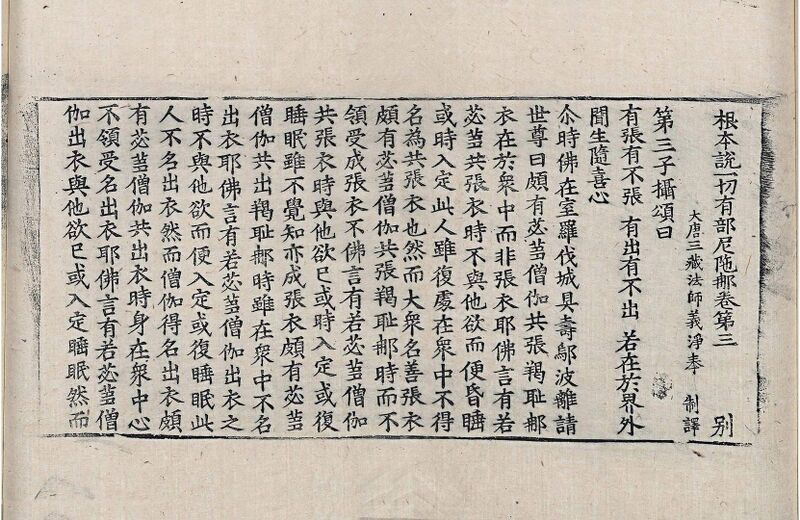 根本說一切有部尼陁那卷第三 别
大唐三藏法師義淨奉 制譯
第三子攝頌曰
有張有不張 有出有不出 若在於界外
聞生隨喜心
尒時佛在室羅伐城具壽鄔波離請
世尊曰頗有苾蒭僧伽共張羯恥那
衣在於衆中而非張衣耶佛言有若
苾蒭共張衣時不與他欲而便昏睡
或時入定此人雖復處在衆中不得
名為共張衣也然而大衆名善張衣
頗有苾蒭僧伽共張羯恥那時而不
領受成張衣不佛言有若苾蒭僧伽
共張衣時與他欲已或時入定或復
睡眠雖不覺知亦成張衣頗有苾蒭
僧伽共出羯恥那時雖在衆中不名
出衣耶佛言有若苾蒭僧伽出衣之
時不與他欲而便入定或復睡眠此
人不名出衣然而僧伽得名出衣頗
有苾蒭僧伽共出衣時身在衆中心
不領受名出衣耶佛言有若苾蒭僧
伽出衣與他欲已或入定睡眠然而